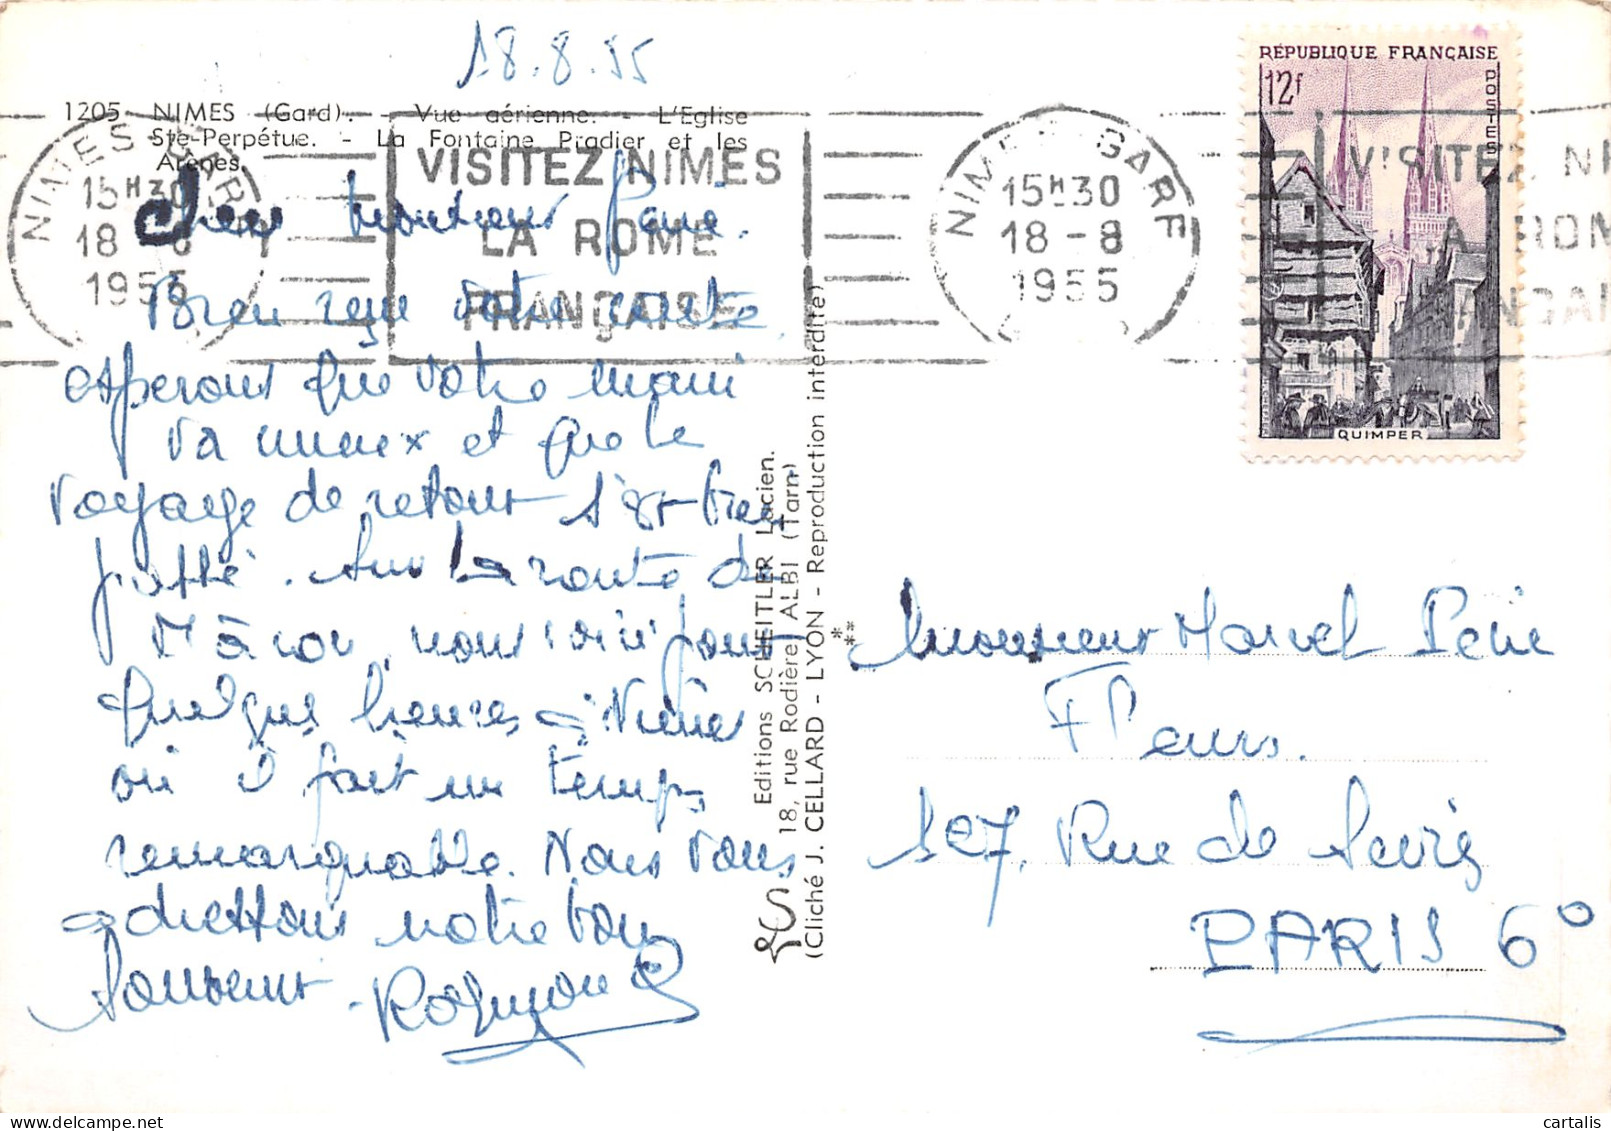 18.8.55
1205 - NIMES (Gard). - Vue aérienne. - L'Eglise
Ste-Perpétue. - La Fontaine Pradier et les
Arènes.
NIMES GARE
15H30
18 - 8
1955
VISITEZ NIMES
LA ROME
FRANÇAISE
NIMES GARE
15H30
18 - 8
1955
VISITEZ NI
LA ROM
RANÇAI
RÉPUBLIQUE FRANÇAISE
12f
POSTES
QUIMPER
Cher Monsieur
Bien reçu votre carte
esperons que votre mari
va mieux et que le
voyage de retour s'est bien
passé. Sur la route de
nous pour
quelques heures à Nîmes
où il fait un temps
remarquable. Nous vous
adressons notre bon
souvenir.
Editions SCHEITLER Lucien.
18, rue Rodière, ALBI (Tarn)
(Cliché J. CELLARD - LYON - Reproduction interdite)
Monsieur Marcel
Fleurs.
107, Rue de Sèvres
PARIS 6°
cartalis